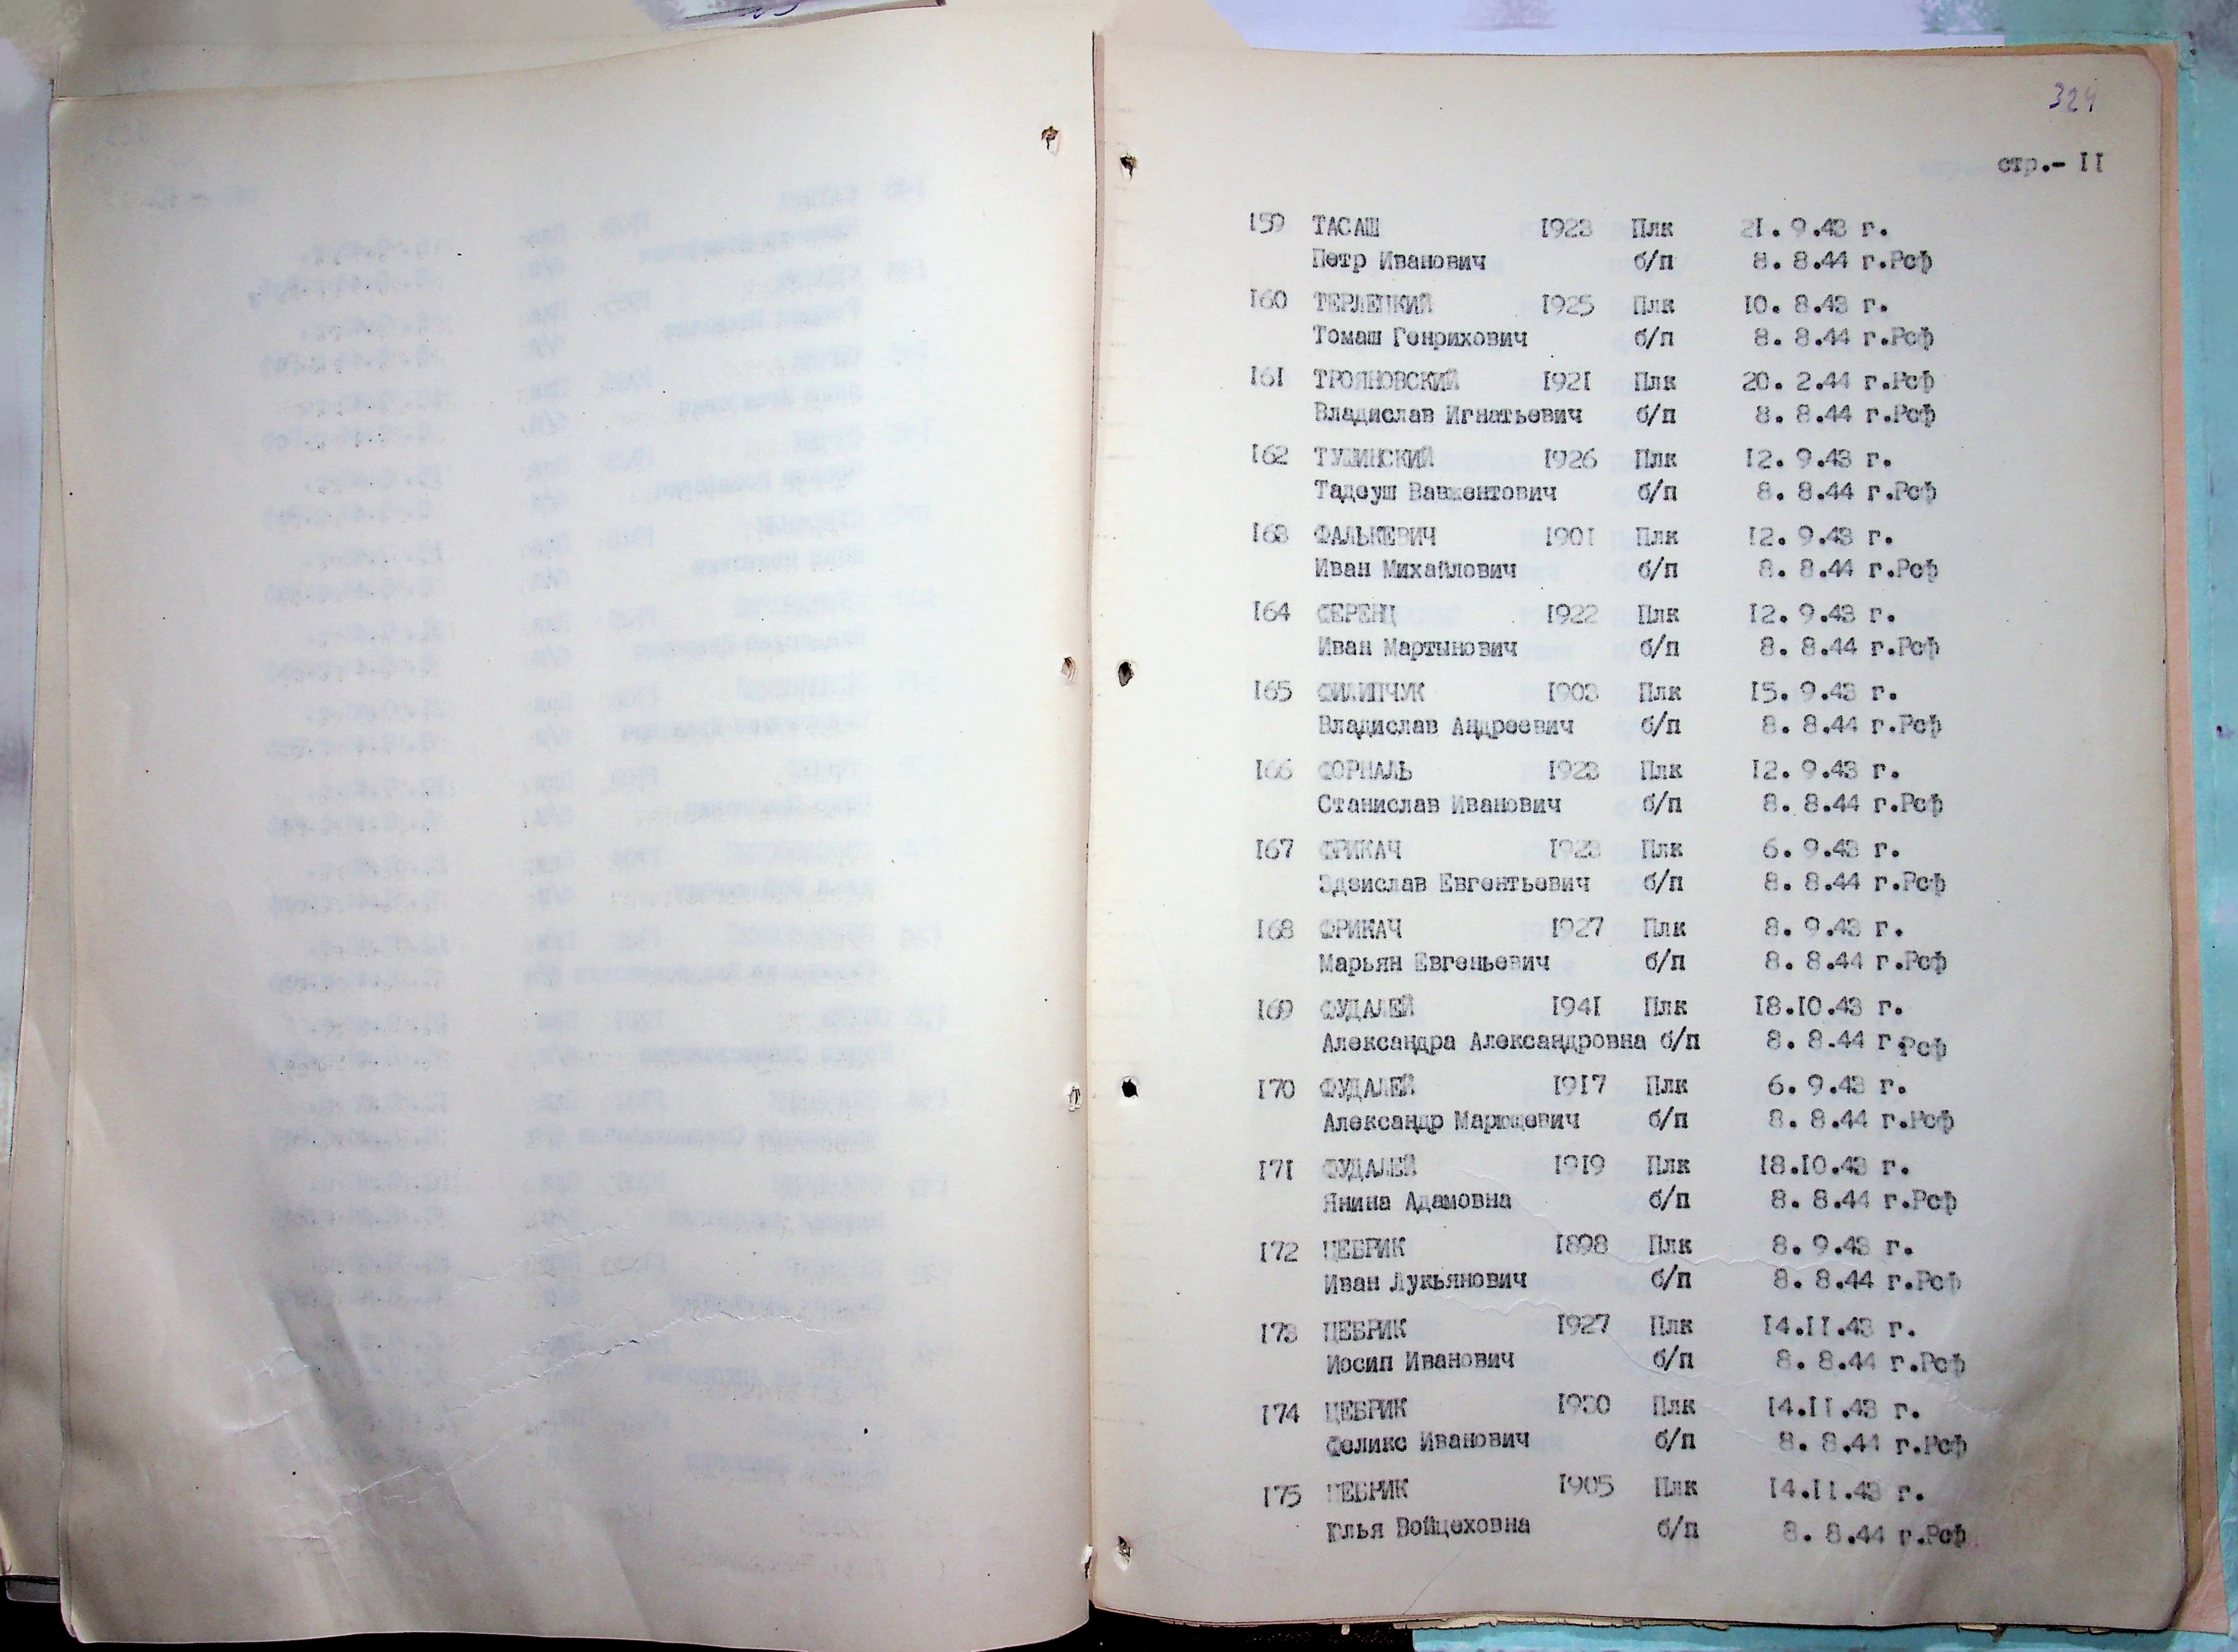 324
стр.- II
I59 ТАСАШ I923 Плк 2I. 9.43 г.
Петр Иванович б/п 8. 8.44 г.Рсф
I60 ТЕРЛЕЦКИЙ I925 Плк I0. 8.43 г.
Томаш Генрихович б/п 8. 8.44 г.Рсф
I6I ТРОЯНОВСКИЙ I92I Плк 20. 2.44 г.Рсф
Владислав Игнатьевич б/п 8. 8.44 г.Рсф
I62 I926 Плк I2. 9.43 г.
Тадеуш Вавжентович б/п 8. 8.44 г.Рсф
I63 ФАЛЬКЕВИЧ I90I Плк I2. 9.43 г.
Иван Михайлович б/п 8. 8.44 г.Рсф
I64 ФЕРЕНЦ I922 Плк I2. 9.43 г.
Иван Мартынович б/п 8. 8.44 г.Рсф
I65 ФИЛИПЧУК I903 Плк I5. 9.43 г.
Владислав Андреевич б/п 8. 8.44 г.Рсф
I66 ФОРНАЛЬ I923 Плк I2. 9.43 г.
Станислав Иванович б/п 8. 8.44 г.Рсф
I67 ФРИКАЧ I923 Плк 6. 9.43 г.
Здзислав Евгентьевич б/п 8. 8.44 г.Рсф
I68 ФРИКАЧ I927 Плк 8. 9.43 г.
Марьян Евгеньевич б/п 8. 8.44 г.Рсф
I69 ФУДАЛЕЙ I94I Плк I8.I0.43 г.
Александра Александровна б/п 8. 8.44 г.Рсф
I70 ФУДАЛЕЙ I9I7 Плк 6. 9.43 г.
Александр Марющевич б/п 8. 8.44 г.Рсф
I7I ФУДАЛЕЙ I9I9 Плк I8.I0.43 г.
Янина Адамовна б/п 8. 8.44 г.Рсф
I72 ЦЕБРИК I898 Плк 8. 9.43 г.
Иван Лукьянович б/п 8. 8.44 г.Рсф
I73 ЦЕБРИК I927 Плк I4.II.43 г.
Иосип Иванович б/п 8. 8.44 г.Рсф
I74 ЦЕБРИК I930 Плк I4.II.43 г.
Феликс Иванович б/п 8. 8.44 г.Рсф
I75 ЦЕБРИК I905 Плк I4.II.43 г.
Юлья Войцеховна б/п 8. 8.44 г.Рсф